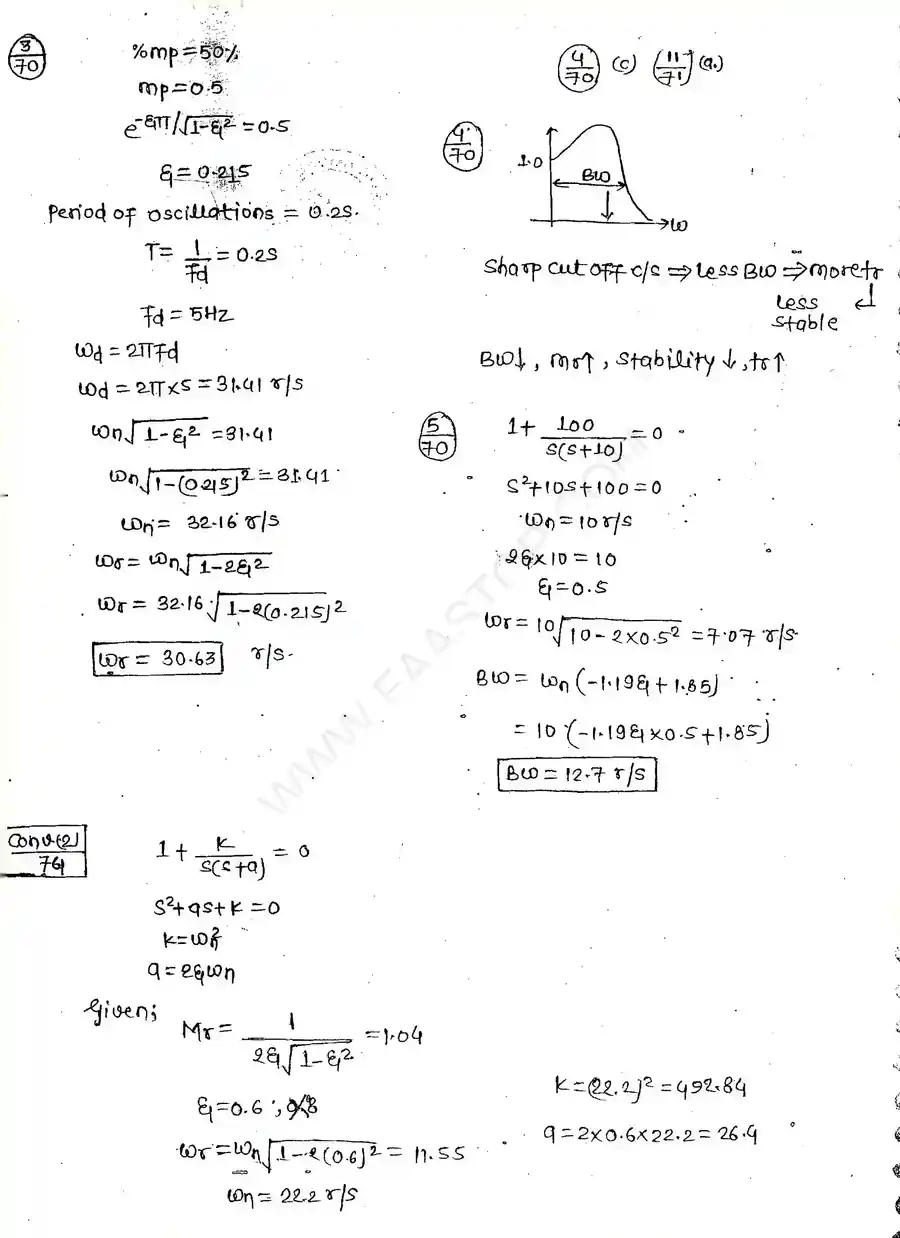 3/70
%mp = 50%
mp = 0.5
e^-ξπ/√1-ξ² = 0.5
ξ = 0.215
Period of oscillations = 0.2s.
T = 1/fd = 0.2s
fd = 5Hz
ωd = 2πfd
ωd = 2π×5 = 31.41 r/s
ωn√1-ξ² = 31.41
ωn√1-(0.215)² = 31.41
ωn = 32.16 r/s
ωr = ωn√1-2ξ²
ωr = 32.16√1-2(0.215)²
ωr = 30.63 r/s.
4/70 (c) (11/71) (a.)
4/70
1.0
BW
ω
Sharp cut off c/s ⇒ Less BW ⇒ more tr
↓
Less
stable
BW↓, mr↑, Stability ↓, tr↑
5/70
1 + 100/s(s+10) = 0
s²+10s+100 = 0
ωn = 10 r/s
2ξ×10 = 10
ξ = 0.5
ωr = 10√10-2×0.5² = 7.07 r/s
BW = ωn(-1.19ξ+1.85)
= 10(-1.19ξ×0.5+1.85)
BW = 12.7 r/s
WWW.EAASTOP.COM
Conv(2)
74
1 + K/s(s+a) = 0
s²+as+K = 0
K = ωn²
a = 2ξωn
Given;
Mr = 1/2ξ√1-ξ² = 1.04
ξ = 0.6,
ωr = ωn√1-2(0.6)² = 11.55
ωn = 22.2 r/s
K = (22.2)² = 492.84
a = 2×0.6×22.2 = 26.4